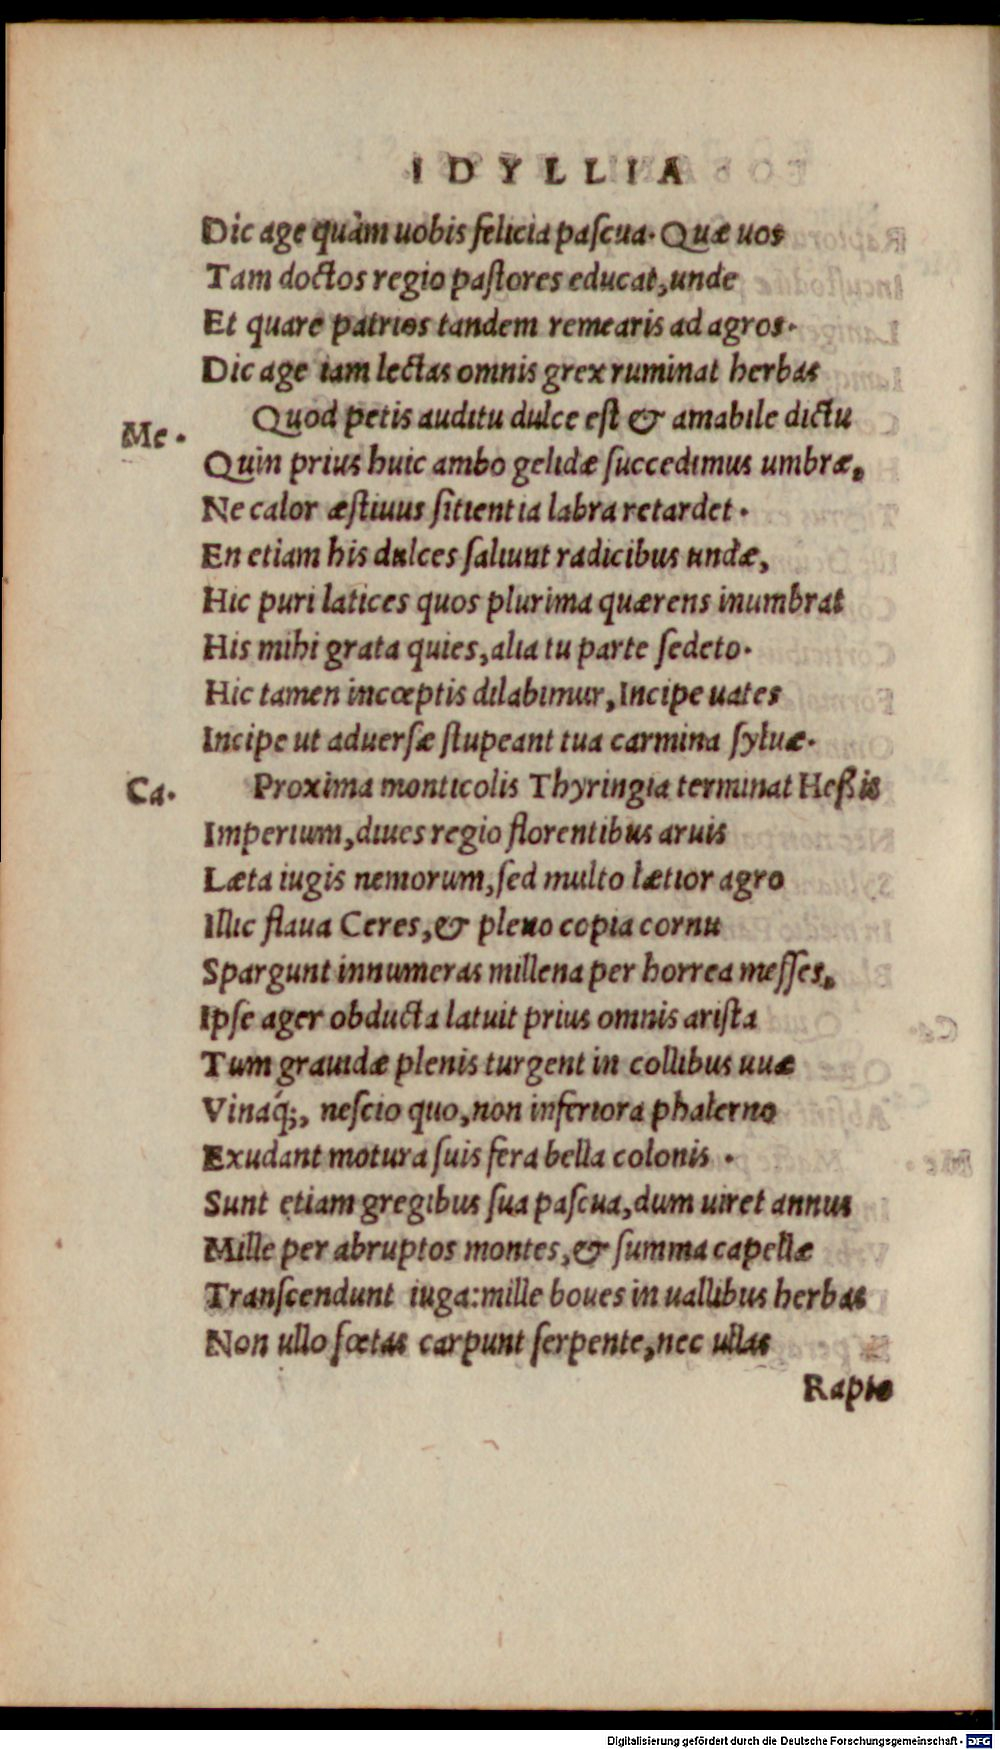 IDYLLIA
Dic age quàm uobis felicia pascua. Quæ uos
Tam doctos regio pastores educat, unde
Et quare patrios tandem remearis ad agros.
Dic age iam lectas omnis grex ruminat herbas
Me. Quod petis auditu dulce est & amabile dictu
Quin prius huic ambo gelidæ succedimus umbræ,
Ne calor æstiuus sitientia labra retardet.
En etiam his dulces saliunt radicibus undæ,
Hic puri latices quos plurima quærens inumbrat
His mihi grata quies, alia tu parte sedeto.
Hic tamen incœptis dilabimur, Incipe uates
Incipe ut aduersæ stupeant tua carmina syluæ.
Ca. Proxima monticolis Thyringia terminat Heßis
Imperium, diues regio florentibus aruis
Læta iugis nemorum, sed multo lætior agro
Illic flaua Ceres, & pleno copia cornu
Spargunt innumeras millena per horrea messes,
Ipse ager obducta latuit prius omnis arista
Tum grauidæ plenis turgent in collibus uuæ
Vinaq́;, nescio quo, non inferiora phalerno
Exudant motura suis fera bella colonis.
Sunt etiam gregibus sua pascua, dum uiret annus
Mille per abruptos montes, & summa capellæ
Transcendunt iuga: mille boues in uallibus herbas
Non ullo fœtas carpunt serpente, nec ullas
Rapto
Digitalisierung gefördert durch die Deutsche Forschungsgemeinschaft - DFG